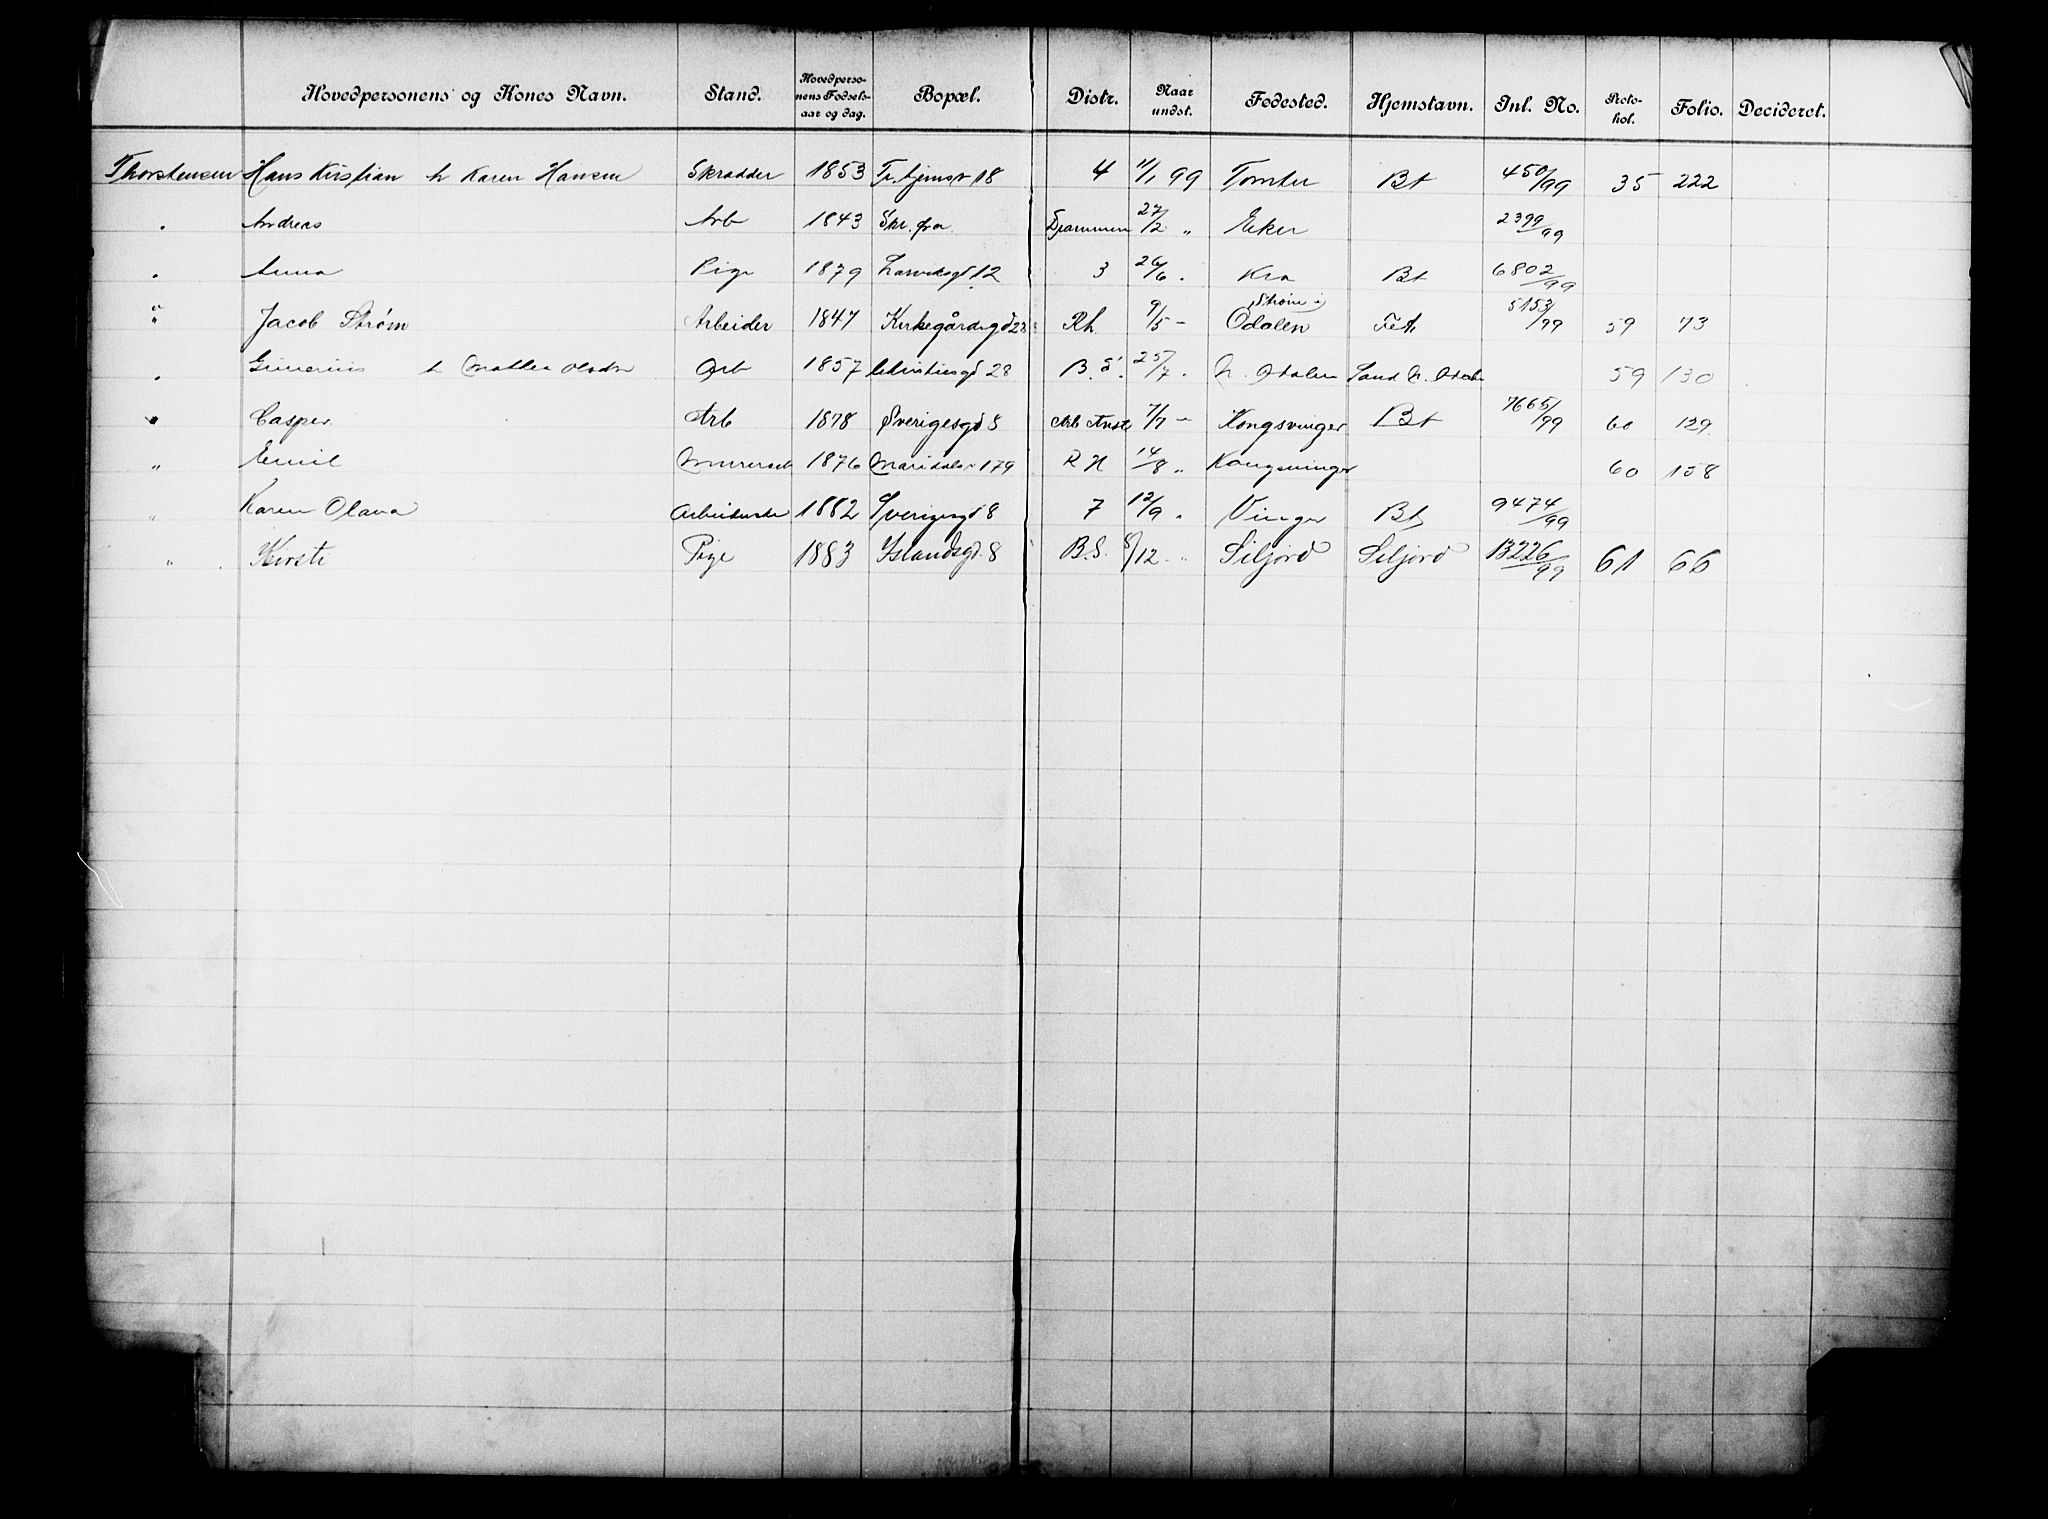 Hovedpersonens og Kones Navn. Stand. Hovedpersonens Fødselsaar og dag. Bopæl. Distr. Naar undst. Fødested. Hjemstavn. Inl. No. Protokol. Folio. Decideret.
Thorstensen Hans Kristian h Karen Hansen Skrædder 1853 18 4 11/1 99 Tomter Bt 450/99 35 222
" Andreas Arb 1843 Skr. fra Drammen 27/2 " Eker 2399/99
" Anna Pige 1879 Larviksgd 12 3 26/6 " Kra Bt 6802/99
" Jacob Strøm Arbeider 1847 Kirkegårdsgd 28 Rh. 9/5 - Strøm i Odalen Fet 5153/99 59 73
" h Mathea Olsdr Arb 1857 Christiesgd 28 B.S. 25/7 " N. Odalen Sand N. Odalen 59 130
" Casper Arb 1878 Sverigesgd 8 Arb Anst 7/7 - Kongsvinger Bt 7665/99 60 129
" Emil Murerarb 1876 Maridalsv 179 R H 14/8 " Kongsvinger 60 158
" Karen Olava Arbeiderske 1882 Sverigesgd 8 7 12/9 " Vinger Bt 9474/99
" Kirsti Pige 1883 Islandsgd. 8 B.S. 8/12 " Siljord Siljord 13226/99 61 66